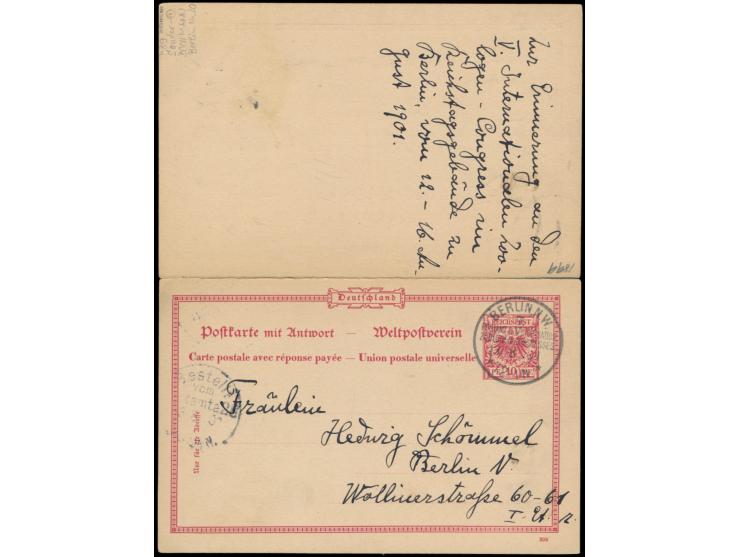 zur Erinnerung an den
V. Internationalen Zoo-
logen-Congress im
Reichstagsgebäude zu
Berlin, vom 12.-16. Au-
gust 1901.
Deutschland
Postkarte mit Antwort — Weltpostverein
Carte postale avec réponse payée — Union postale universelle
BERLIN N.W.
REICHSPOST
10
Bestellt
vom
Postamte
Nur für die Adresse
Fräulein
Hedwig Schömmel
Berlin N.
Wollinerstraße 60-61
I. Et. r.